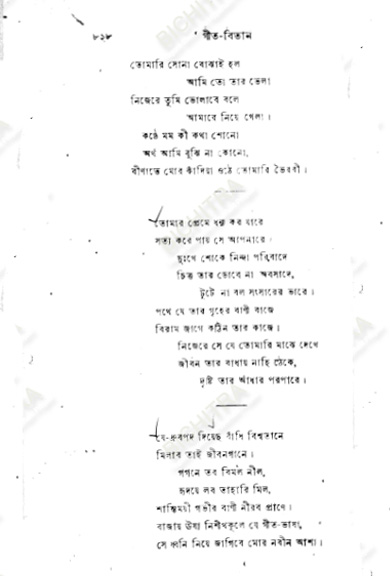 ৮২৮ গীত-বিতান
তোমারি সোনা বোঝাই হল
আমি তো তার ভেলা
নিজেরে তুমি ভোলাবে বলে
আমারে নিয়ে খেলা।
কণ্ঠে মম কী কথা শোনো
অর্থ আমি বুঝি না কোনো,
বীণাতে মোর কাঁদিয়া ওঠে তোমারি ভৈরবী।
তোমার প্রেমে ধন্য কর যারে
সত্য করে পায় সে আপনারে।
দুঃখে শোকে নিন্দা পরিবাদে
চিত্ত তার ডোবে না অবসাদে,
টুটে না বল সংসারের ভারে।
পথে যে তার গৃহের বাণী বাজে
বিরাম জাগে কঠিন তার কাজে।
নিজেরে সে যে তোমারি মাঝে দেখে
জীবন তার বাধায় নাহি ঠেকে,
দৃষ্টি তার আঁধার পরপারে।
যে-ধ্রুবপদ দিয়েছ বাঁধি বিশ্বতানে
মিলাব তাই জীবনগানে।
গগনে তব বিমল নীল,
হৃদয়ে লব তাহারি মিল,
শান্তিময়ী গভীর বাণী নীরব প্রাণে।
বাজায় উষা নিশীথকূলে যে গীত-ভাষা,
সে ধ্বনি নিয়ে জাগিবে মোর নবীন আশা।
BICHITRA
BICHITRA
BICHITRA